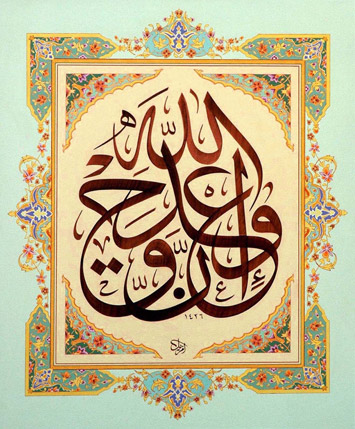 إِنَّ وَعْدَ اللَّهِ حَقٌّ
١٤٢٦